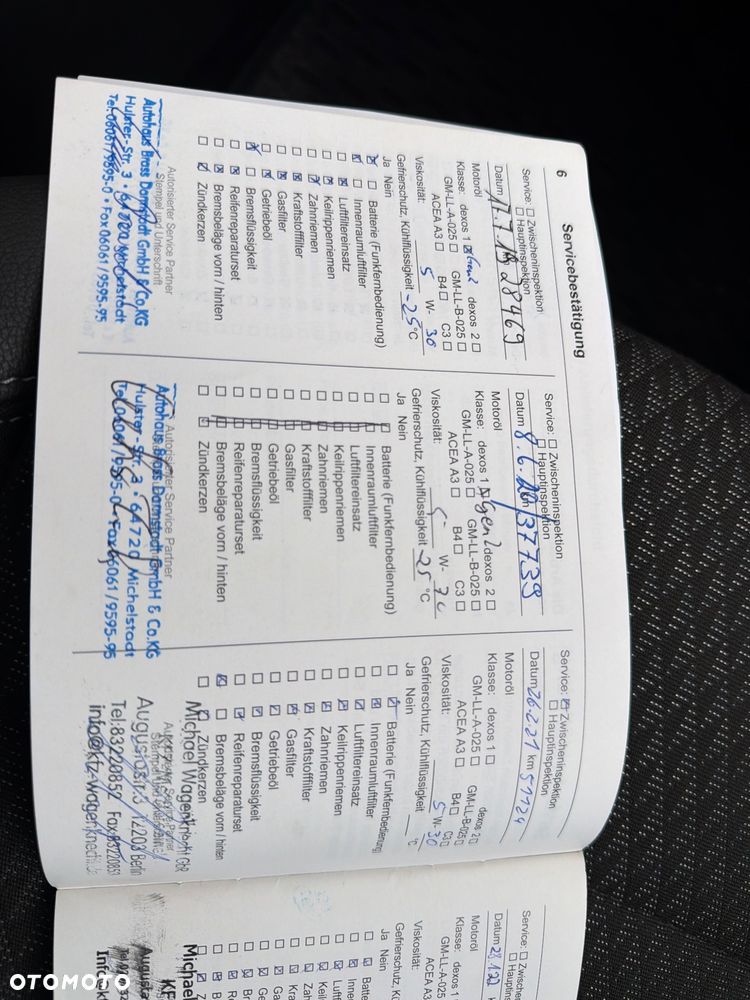 6
Servicebestätigung
Service: ☐ Zwischeninspektion
☐ Hauptinspektion
Datum 17.7.19 28469
Motoröl
Klasse: dexos 1 ☒ Gen2 dexos 2 ☐
GM-LL-A-025 ☐ GM-LL-B-025 ☐
ACEA A3 ☐ B4 ☐ C3 ☐
Viskosität: 5 W- 30
Gefrierschutz, Kühlflüssigkeit -25 °C
Ja Nein
Batterie (Funkfernbedienung)
Innenraumluftfilter
Luftfiltereinsatz
Keilrippenriemen
Zahnriemen
Kraftstofffilter
Gasfilter
Getriebeöl
Bremsflüssigkeit
Reifenreparaturset
Bremsbeläge vorn / hinten
Zündkerzen
Autorisierter Service Partner
Stempel und Unterschrift
Autohaus Brass Darmstadt GmbH & Co.KG
Hulster-Str. 3 • 64720 Michelstadt
Tel.06061/9595-0 • Fax 06061/9595-95
Service: ☐ Zwischeninspektion
☐ Hauptinspektion
Datum 8.6.20 37739
Motoröl
Klasse: dexos 1 Gen2 dexos 2 ☐
GM-LL-A-025 ☐ GM-LL-B-025 ☐
ACEA A3 ☐ B4 ☐ C3 ☐
Viskosität: 5 W- 30
Gefrierschutz, Kühlflüssigkeit -25 °C
Ja Nein
Batterie (Funkfernbedienung)
Innenraumluftfilter
Luftfiltereinsatz
Keilrippenriemen
Zahnriemen
Kraftstofffilter
Gasfilter
Getriebeöl
Bremsflüssigkeit
Reifenreparaturset
Bremsbeläge vorn / hinten
Zündkerzen
Autorisierter Service Partner
Autohaus Brass Darmstadt GmbH & Co.KG
Hulster-Str. 3 • 64720 Michelstadt
Tel.06061/9595-0 • Fax 06061/9595-95
Service: ☒ Zwischeninspektion
☐ Hauptinspektion
Datum 26.2.21 km 51124
Motoröl
Klasse: dexos 1 ☐ dexos 2 ☐
GM-LL-A-025 ☐ GM-LL-B-025 ☐
ACEA A3 ☐ B4 ☐ C3 ☐
Viskosität: 5 W- 30
Gefrierschutz, Kühlflüssigkeit °C
Ja Nein
Batterie (Funkfernbedienung)
Innenraumluftfilter
Luftfiltereinsatz
Keilrippenriemen
Zahnriemen
Kraftstofffilter
Gasfilter
Getriebeöl
Bremsflüssigkeit
Reifenreparaturset
Bremsbeläge vorn / hinten
Zündkerzen
Michael Wagenknecht GbR
Augustastr. 12203 Berlin
Tel:83220852 Fax:83220853
Service: ☐ Zwischen
☐ Haupt
Datum 28.1.22
Motoröl
Klasse: dexos 1
GM-LL-A-02
ACEA A3
Viskosität:
Gefrierschutz, Kühl
Ja Nein
Michael
OTOMOTO